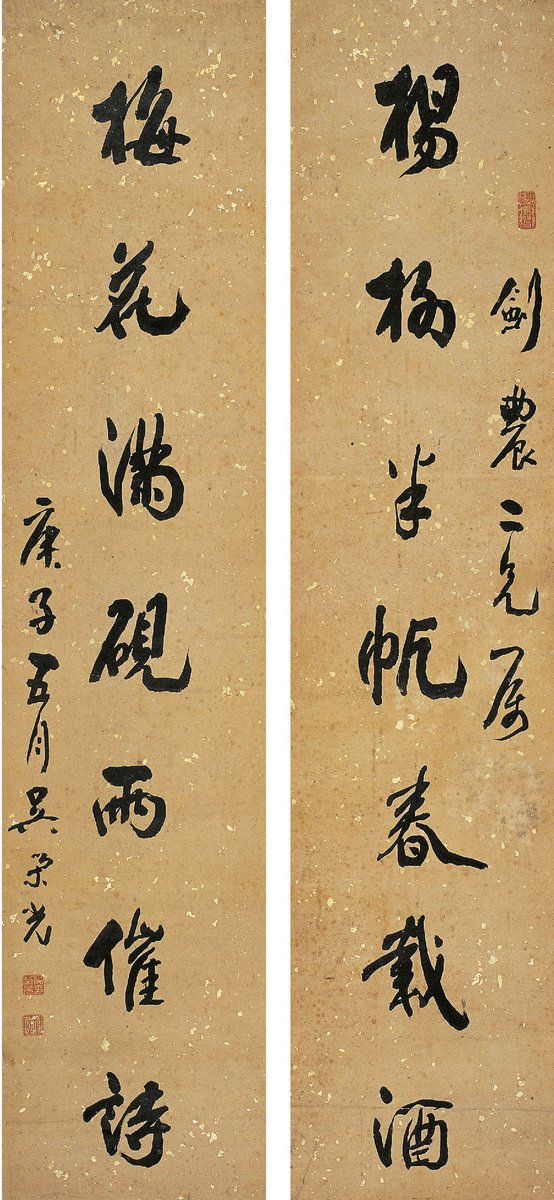 劍農二兄属
楊柳半帆春載酒
梅花滿硯雨催詩
庚子五月吳榮光